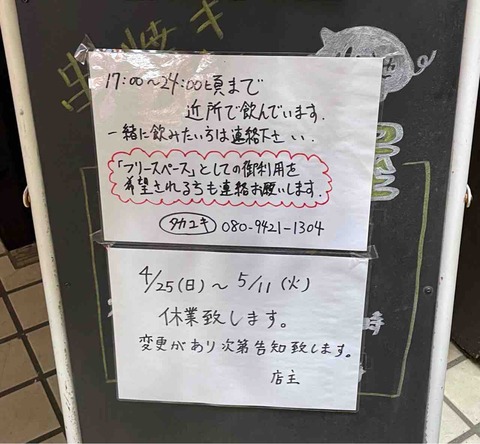 串焼き
17:00〜24:00頃まで
近所で飲んでいます.
一緒に飲みたい方は連絡下さい.
「フリースペース」としての御利用を
希望される方も連絡お願いします.
タカユキ 080-9421-1304
4/25(日)〜5/11(火)
休業致します。
変更があり次第告知致します。
店主